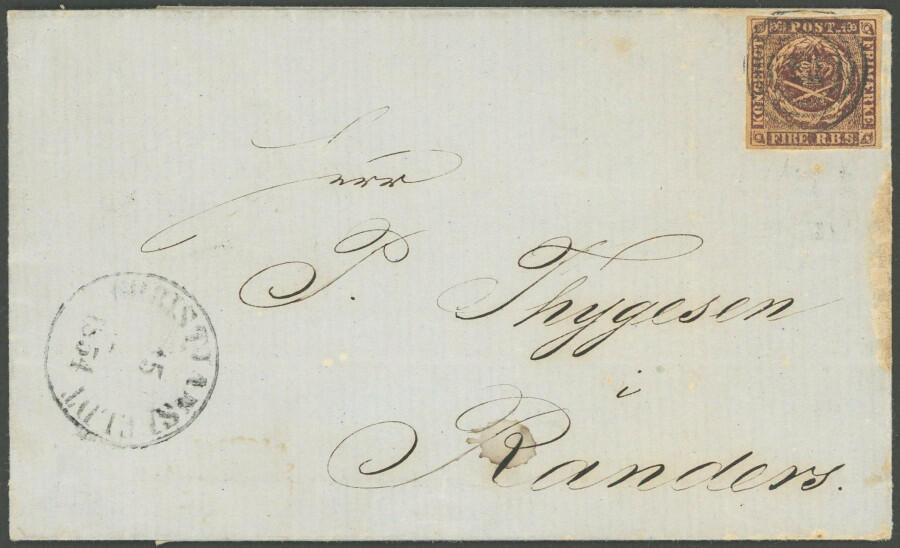 POST
KONGELIGT
FRIMÆRKE
FIRE R.B.S.
Herr
P. Thygesen
i
Randers.
CHRISTIANSFELDT
1854